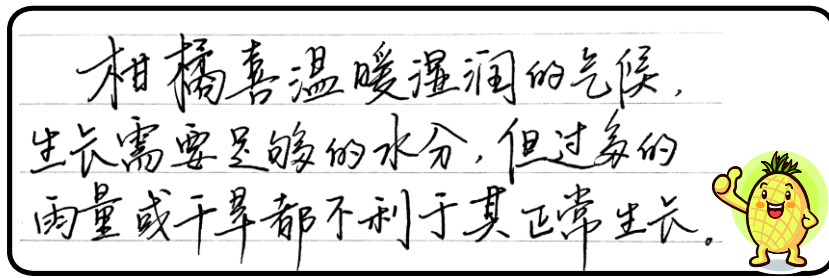 柑橘喜温暖湿润的气候，
生长需要足够的水分，但过多的
雨量或干旱都不利于其正常生长。